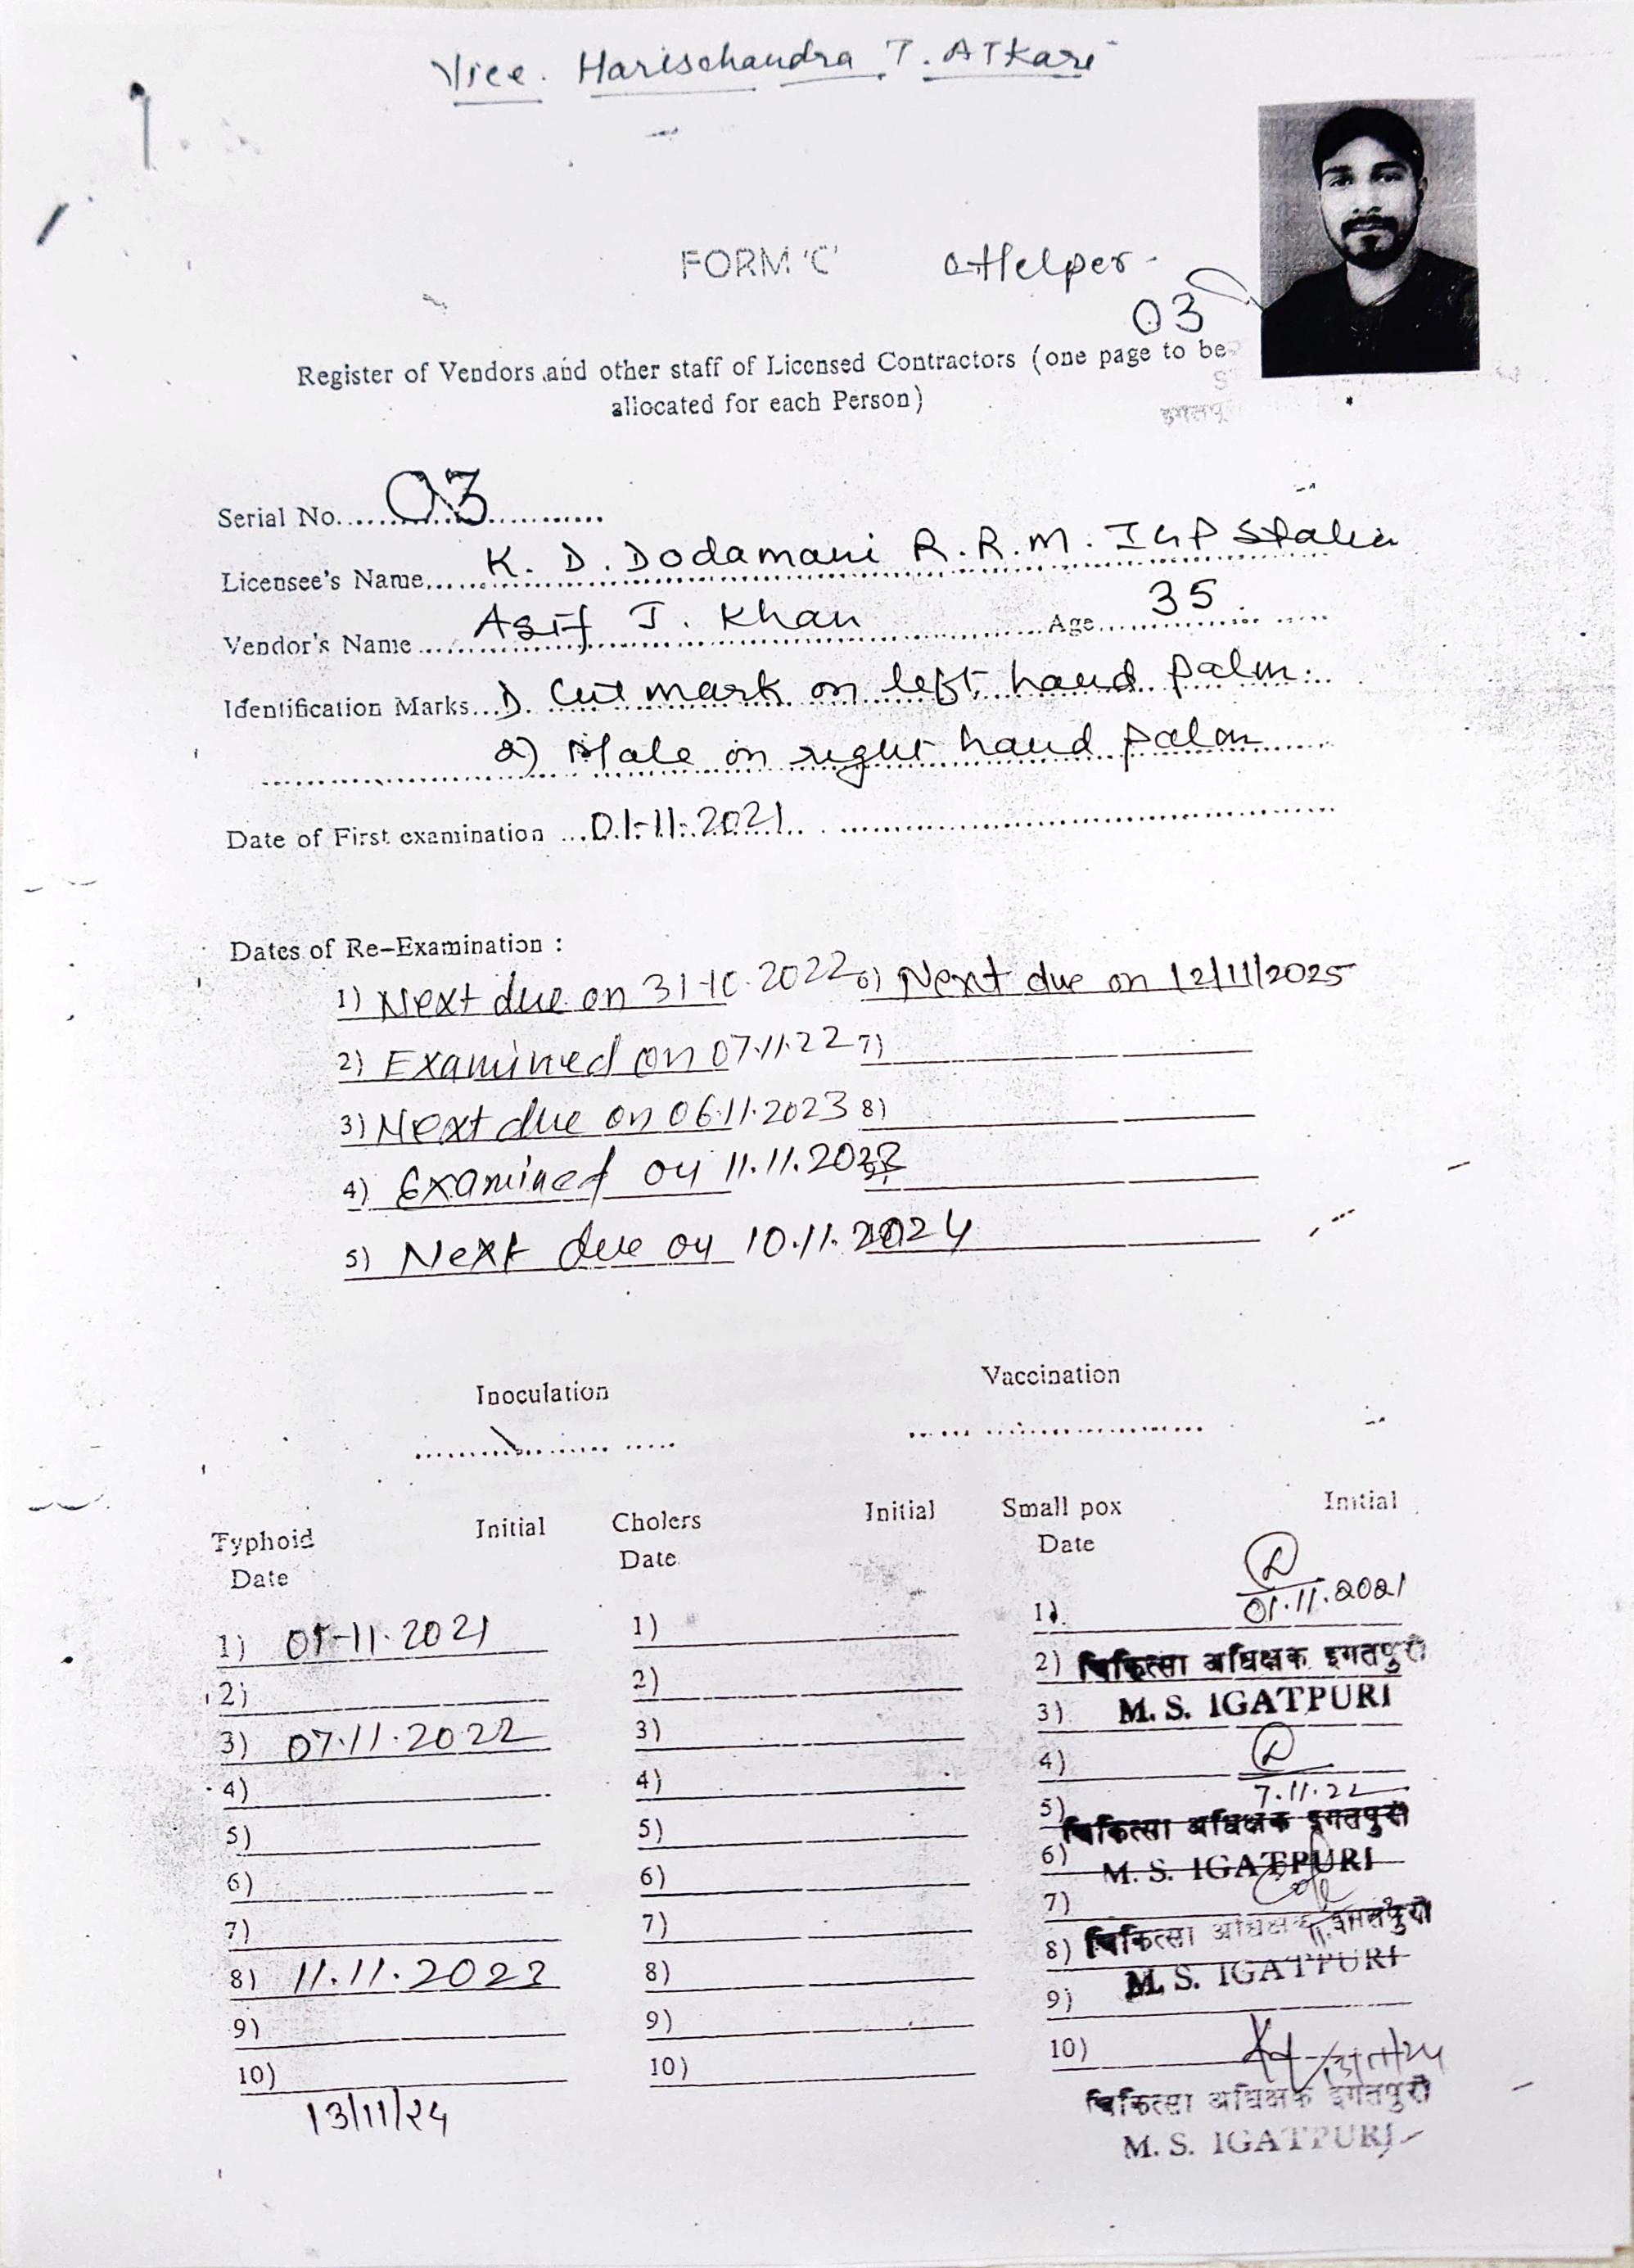 Vice. Harischandra T. Atkari
FORM 'C' Helper
03
Register of Vendors and other staff of Licensed Contractors (one page to be
allocated for each Person)
Serial No. 03
Licensee's Name K. D. Dodamani R.R.M. IGP Station
Vendor's Name Asif J. Khan Age 35
Identification Marks 1) Cut mark on left hand palm.
2) Male on right hand palm
Date of First examination 01-11-2021
Dates of Re-Examination :
1) Next due on 31-10-2022 6) Next due on 12/11/2025
2) Examined on 07.11.22 7)
3) Next due on 06.11.2023 8)
4) Examined on 11.11.2023
5) Next due on 10.11.2024
Inoculation Vaccination
Typhoid Initial Cholers Initial Small pox Initial
Date Date Date
1) 01-11-2021 1) 1) 01.11.2021
2) 2) 2) चिकित्सा अधिक्षक इगतपुरी
3) 07.11.2022 3) 3) M. S. IGATPURI
4) 4) 4)
7.11.22
5) 5) 5) चिकित्सा अधिक्षक इगतपुरी
6) 6) 6) M. S. IGATPURI
7) 7) 7)
8) 11.11.2023 8) 8) चिकित्सा अधिक्षक इगतपुरी
M. S. IGATPURI
9) 9) 9)
10) 10) 10)
13/11/24 चिकित्सा अधिक्षक इगतपुरी
M. S. IGATPURI